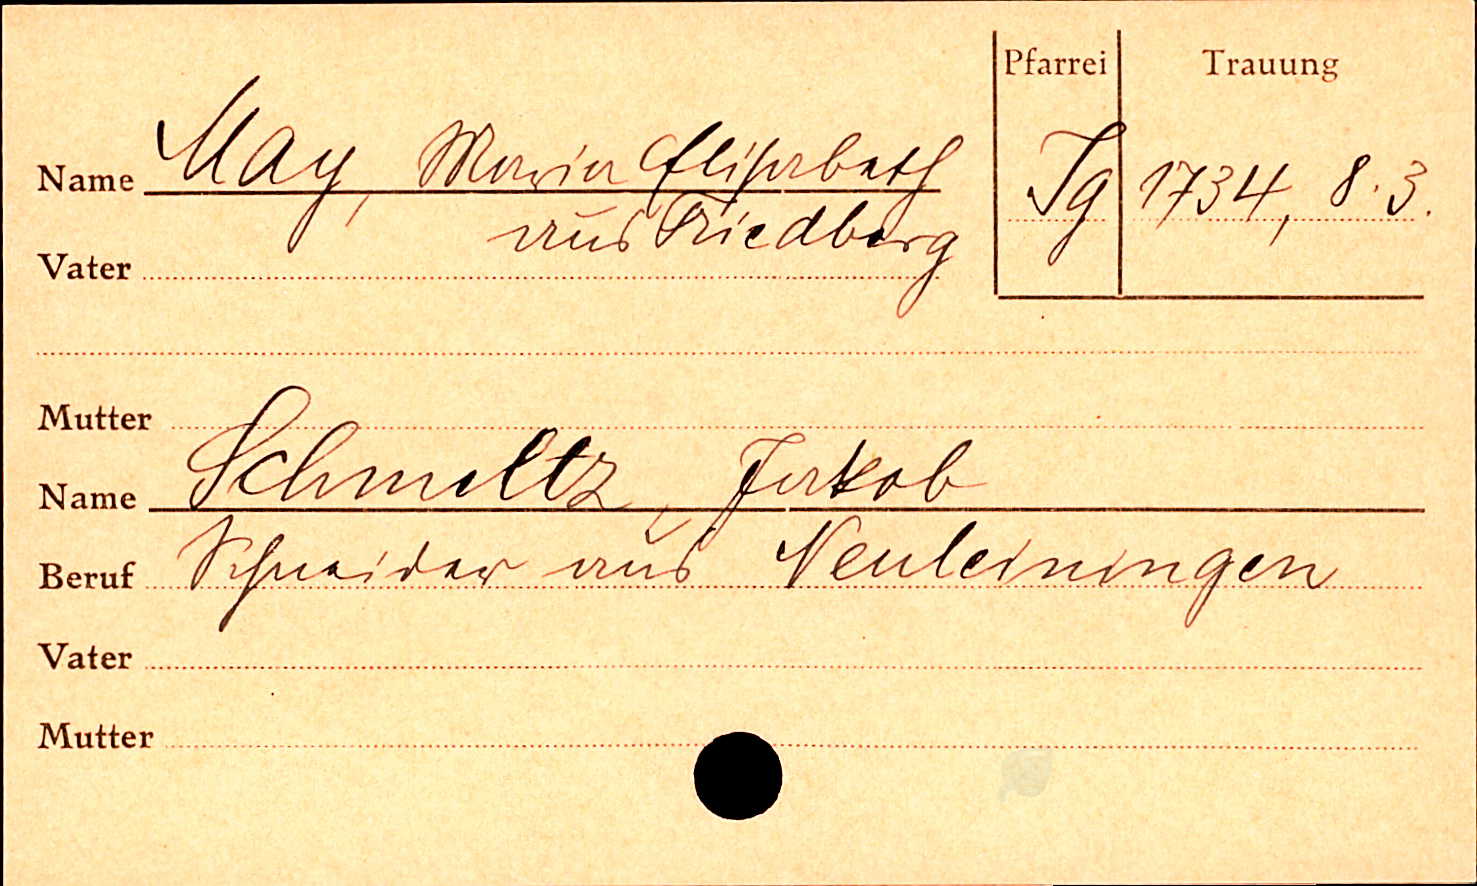 Pfarrei Trauung
Name May, Maria Elisabeth Ig 1734, 8.3.
aus Friedberg
Vater
Mutter
Name Schmeltz, Jakob
Beruf Schneider aus Neuleiningen
Vater
Mutter